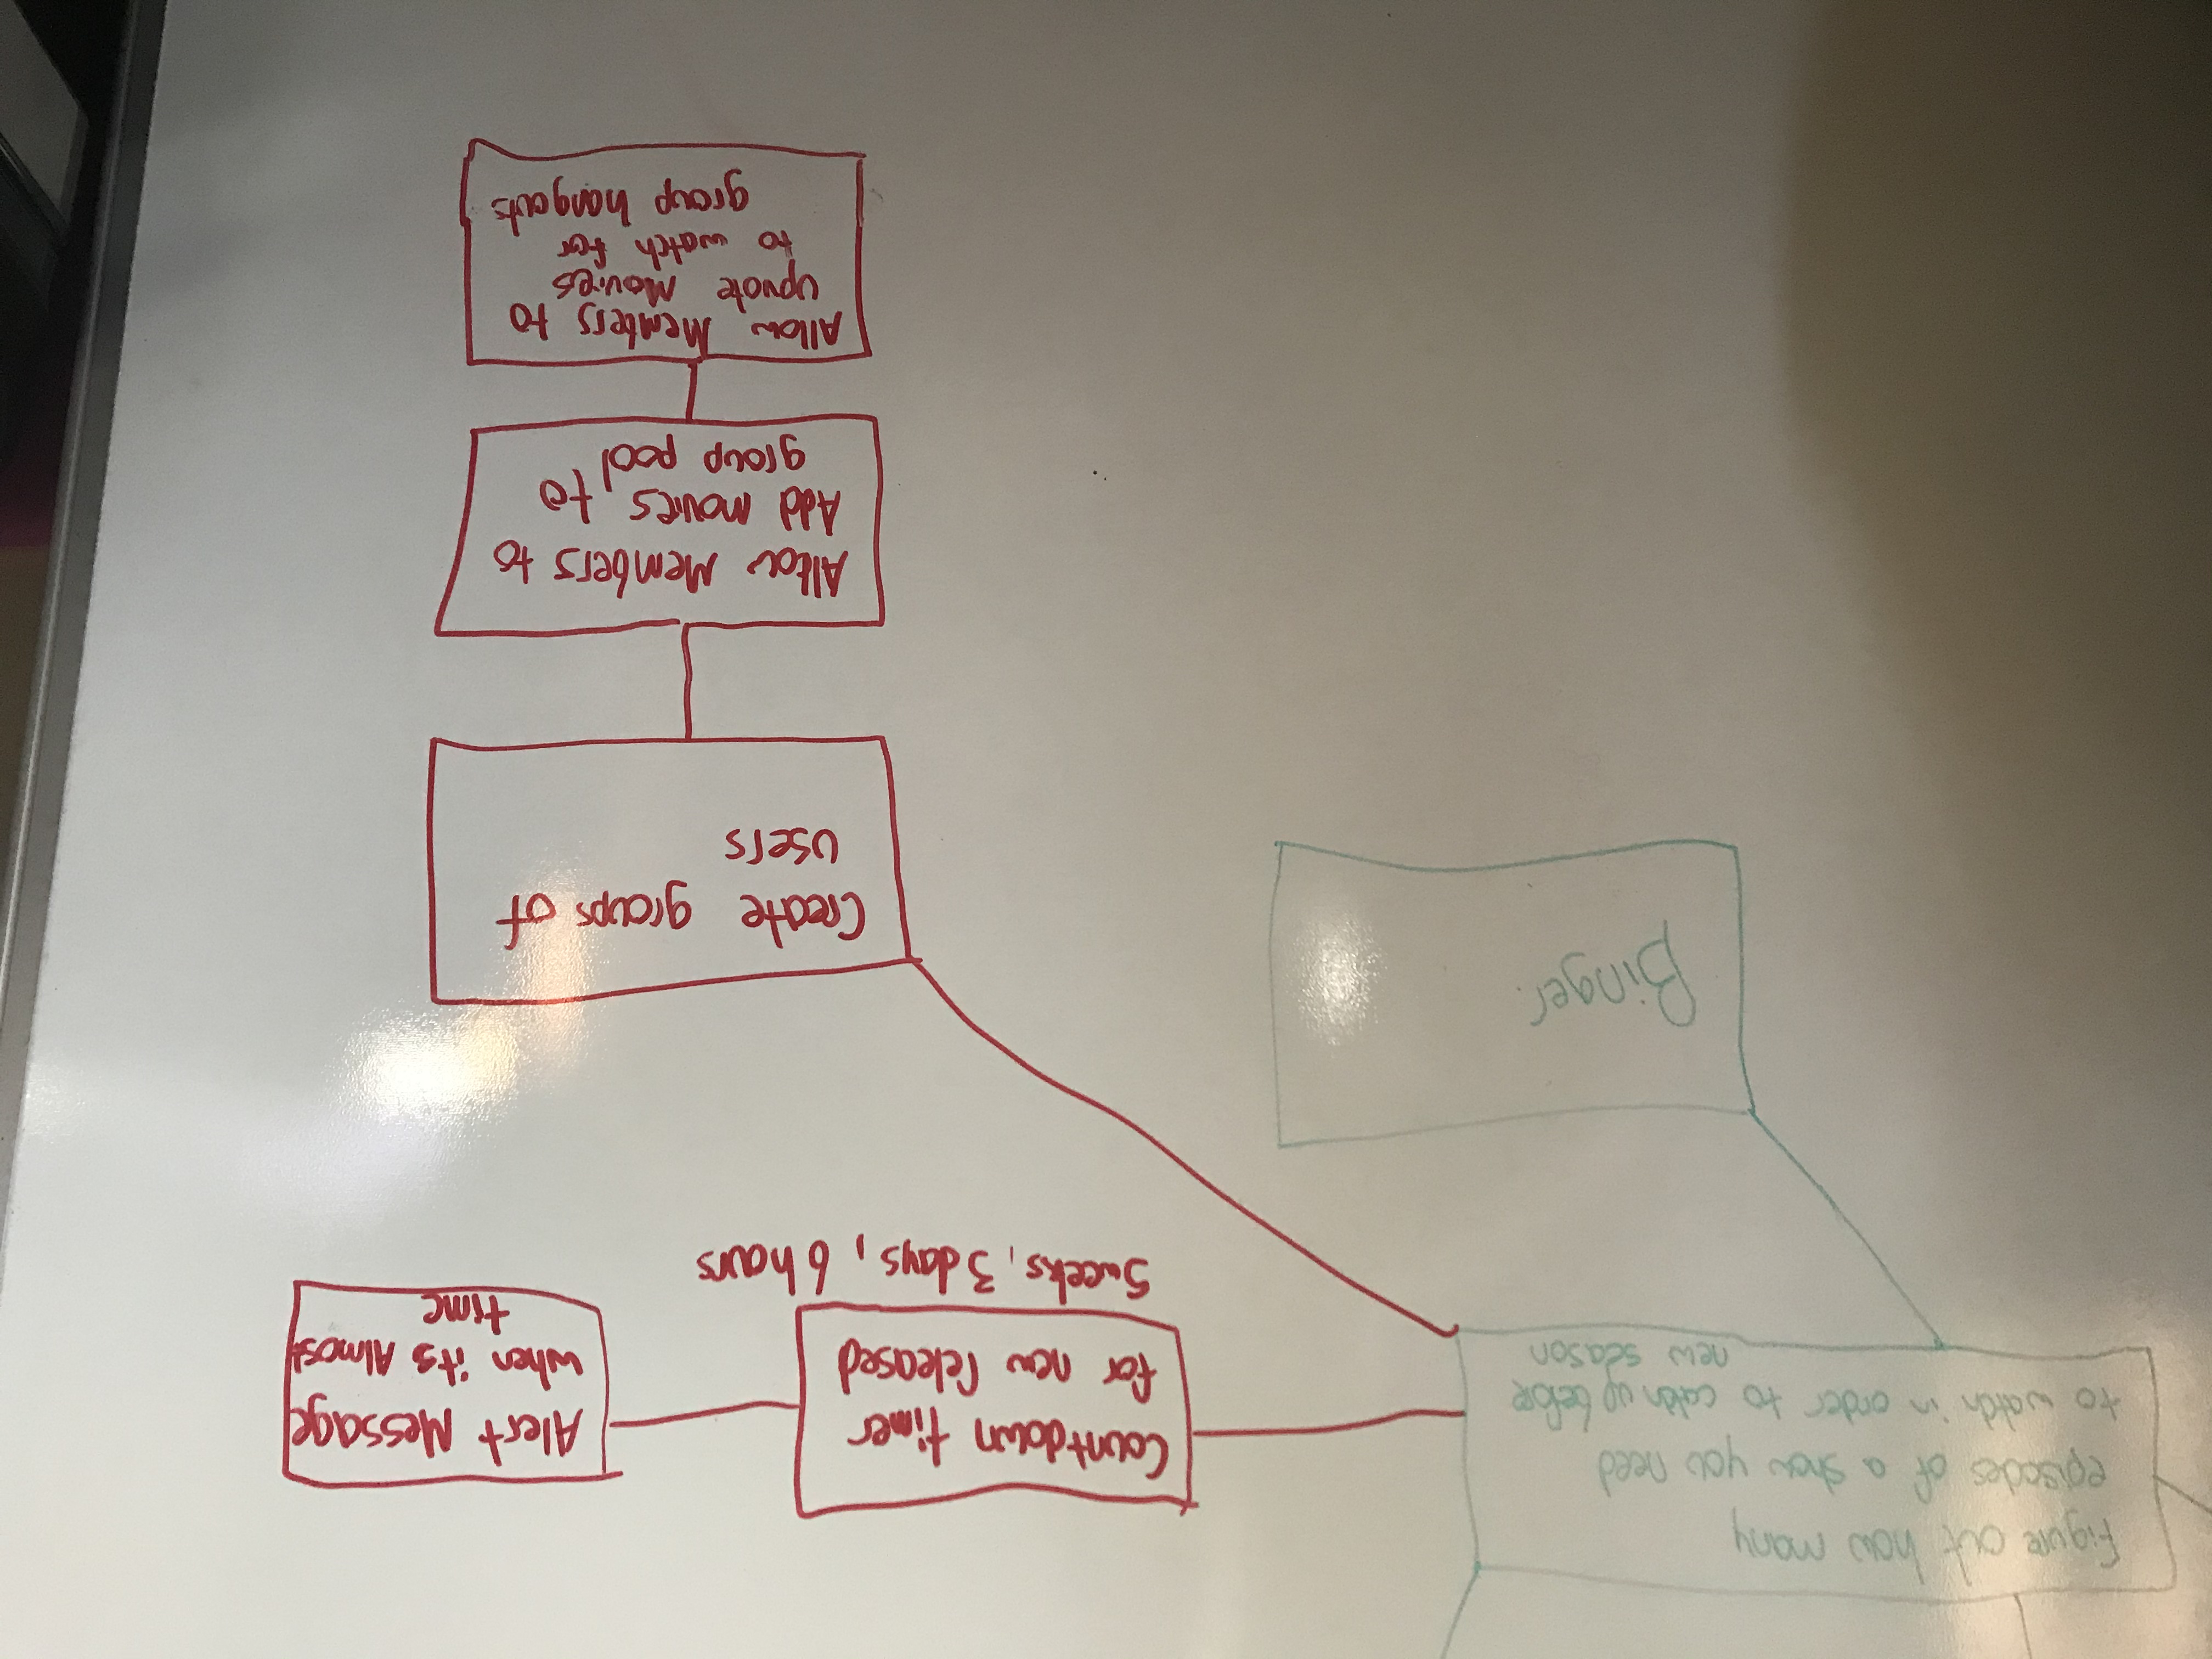 Figure out how many
episodes of a show you need
to watch in order to catch up before
new season
Countdown timer
for new released
5weeks, 3days, 6 hours
Alert Message
when its Almost
time
Binger.
Create groups of
users
Allow Members to
Add movies to
group pool
Allow Members to
upvote Movies
to watch for
group hangouts